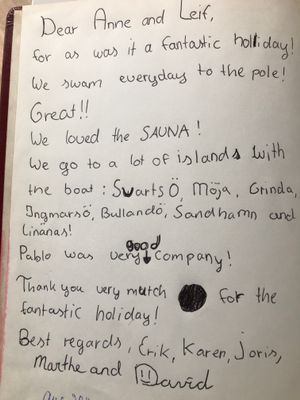 Dear Anne and Leif,
for as was it a fantastic holliday!
We swam everyday to the pole!
Great!!
We loved the SAUNA!
We go to a lot of islands with
the boat: SwartsÖ, Möja, Grinda,
Ingmarsö, Bullandö, Sandhamn and
Linanas!
Pablo was very good company!
Thank you very mutch for the
fantastic holiday!
Best regards, Erik, Karen, Joris,
Marthe and David